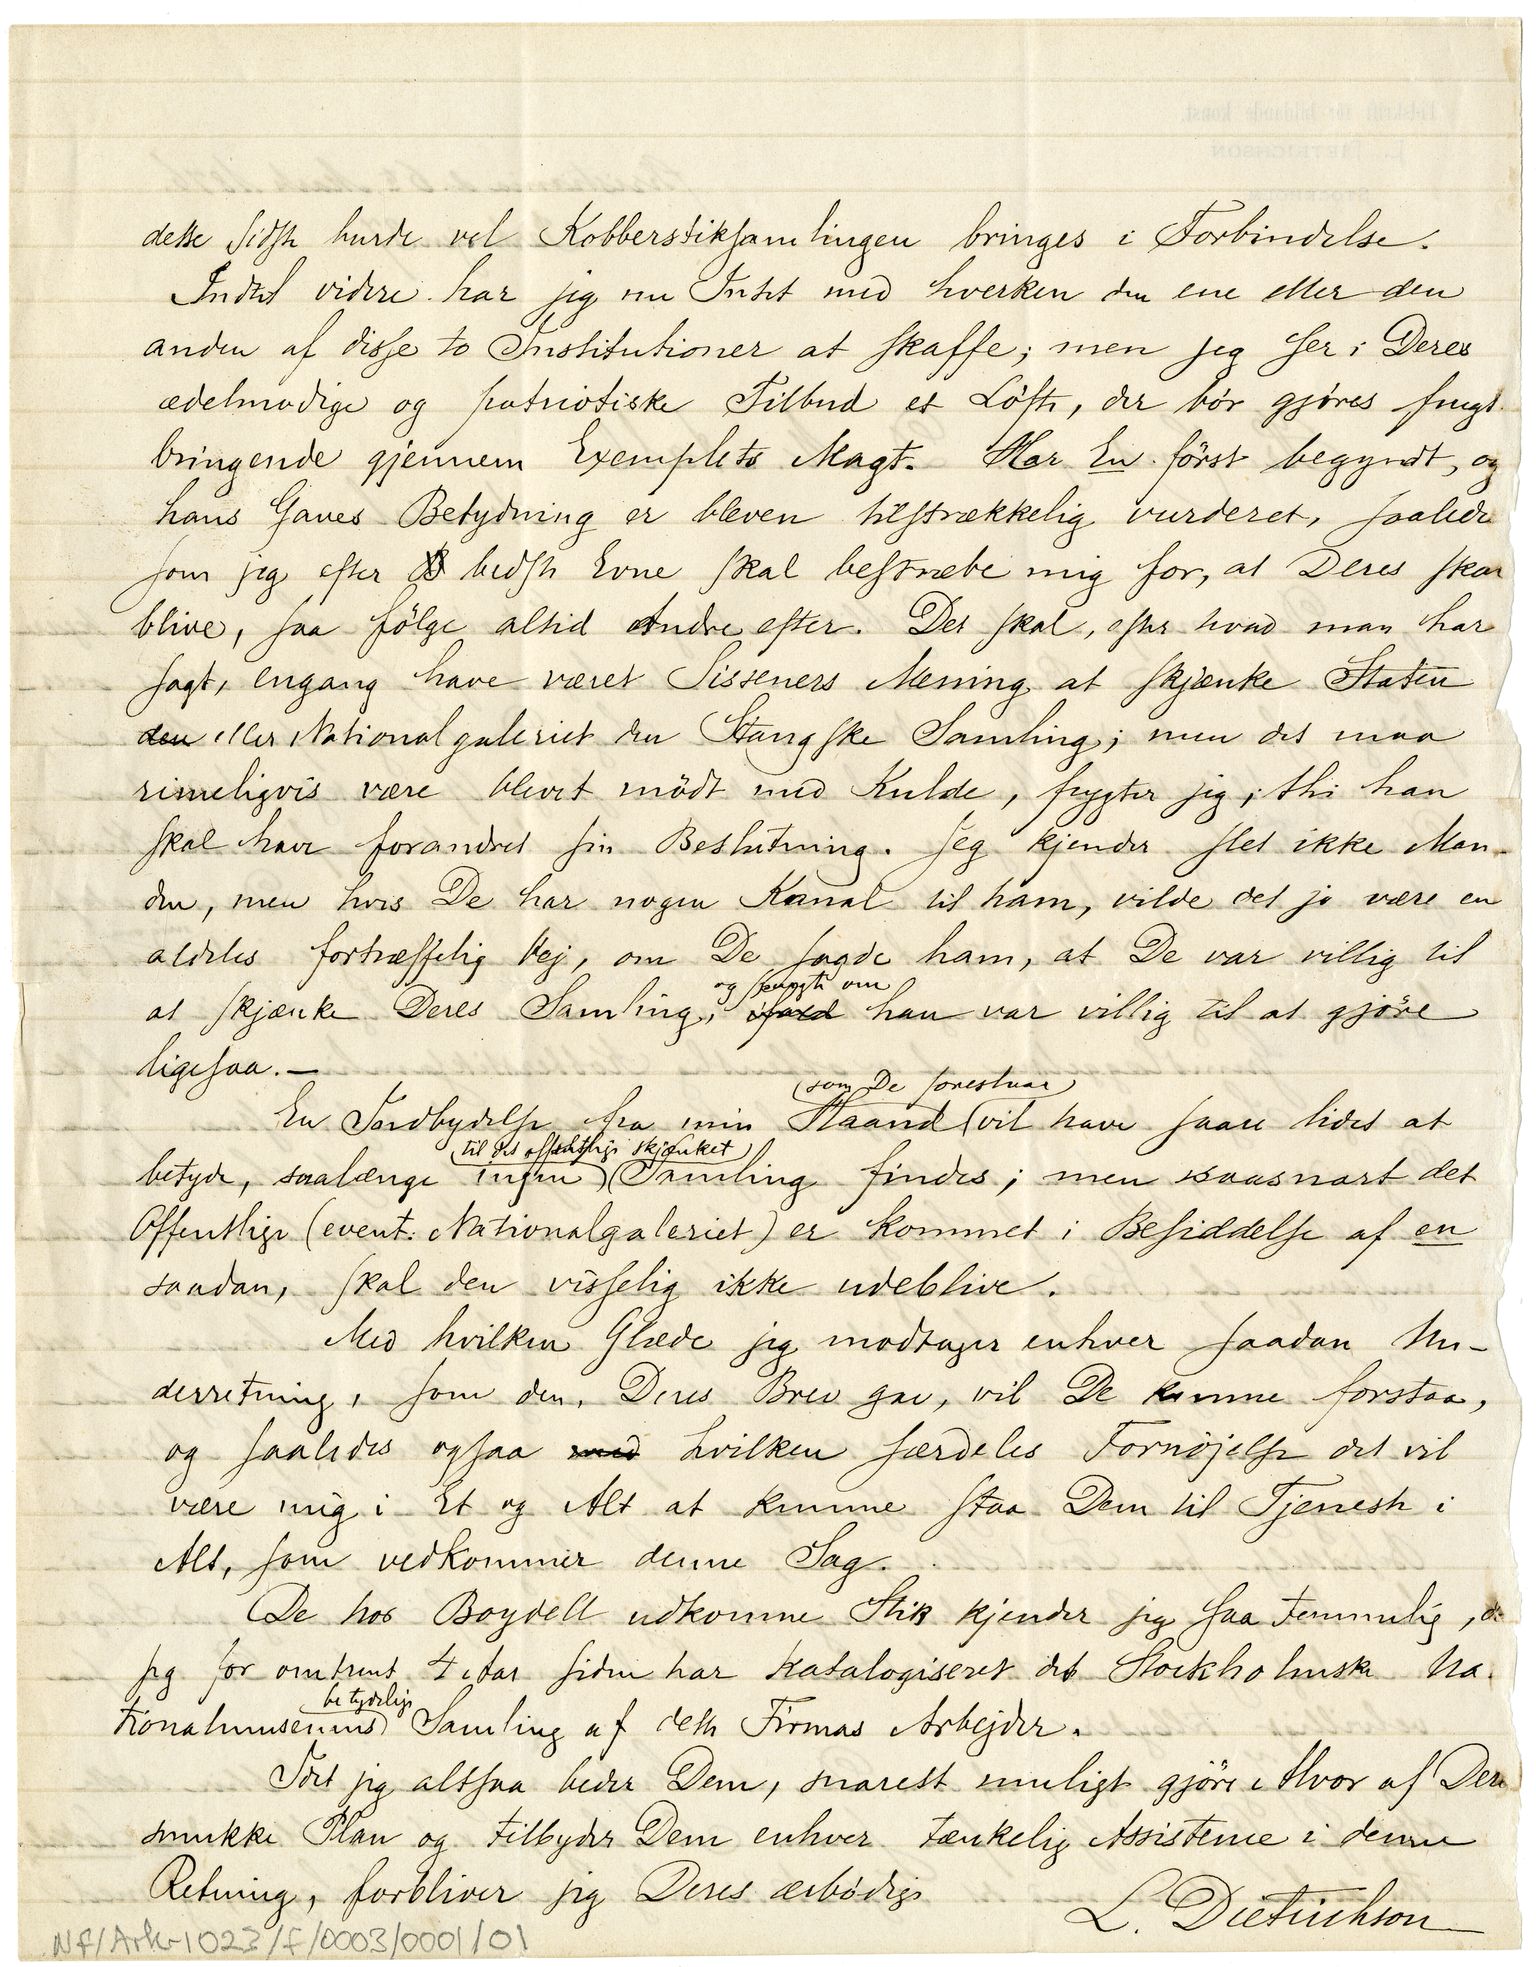 dette sidste burde vel Kobberstiksamlingen bringes i Forbindelse.
Indtil videre har jeg nu Intet med hverken den ene eller den
anden af disse to Institutioner at skaffe; men jeg ser i Deres
ædelmodige og patriotiske Tilbud et Löfte, der bör gjöres frugt-
bringende gjennem Exemplets Magt. Har En först begyndt, og
hans Gaves Betydning er bleven tilstrækkelig vurderet, saaledes
som jeg efter bedste Evne skal bestræbe mig for, at Deres skal
blive, saa fölge altid Andre efter. Det skal, efter hvad man har
sagt, engang have været Sisseners Mening at skjænke Staten
den eller Nationalgaleriet den Stangske Samling; men det maa
rimeligvis være blevet mödt med Kulde, frygter jeg; thi han
skal have forandret sin Beslutning. Jeg kjender slet ikke Man-
den, men hvis De har nogen Kanal til ham, vilde det jo være en
aldeles fortræffelig Vej, om De sagde ham, at De var villig til
og spurgte om
at skjænke Deres Samling, ifald han var villig til at gjöre
ligesaa.—
(som De foreslaar)
En Indbydelse fra min Haand vil have saare lidet at
til det offentlige skjænket
betyde, saalænge ingen Samling findes; men saasnart det
Offentlige (event. Nationalgaleriet) er kommet i Besiddelse af en
saadan, skal den visselig ikke udeblive.
Med hvilken Glæde jeg modtager enhver saadan Un-
derretning, som den, Deres Brev gav, vil De kunne forstaa,
og saaledes ogsaa med hvilken særdeles Fornöjelse det vil
være mig i Et og Alt at kunne staa Dem til Tjeneste i
Alt, som vedkommer denne Sag.
De hos Boydell udkomne Stik kjender jeg saa temmelig, da
jeg for omtrent Aar siden har katalogiseret det Stockholmske Na-
betydelige
tionalmuseums Samling af dette Firmas Arbejder.
Idet jeg altsaa beder Dem, snarest muligt gjöre Alvor af Deres
smukke Plan og tilbyder Dem enhver tænkelig Assistence i denne
Retning, forbliver jeg Deres ærbödige
L. Dietrichson
Nf/Ark-1023/f/0003/0001/01